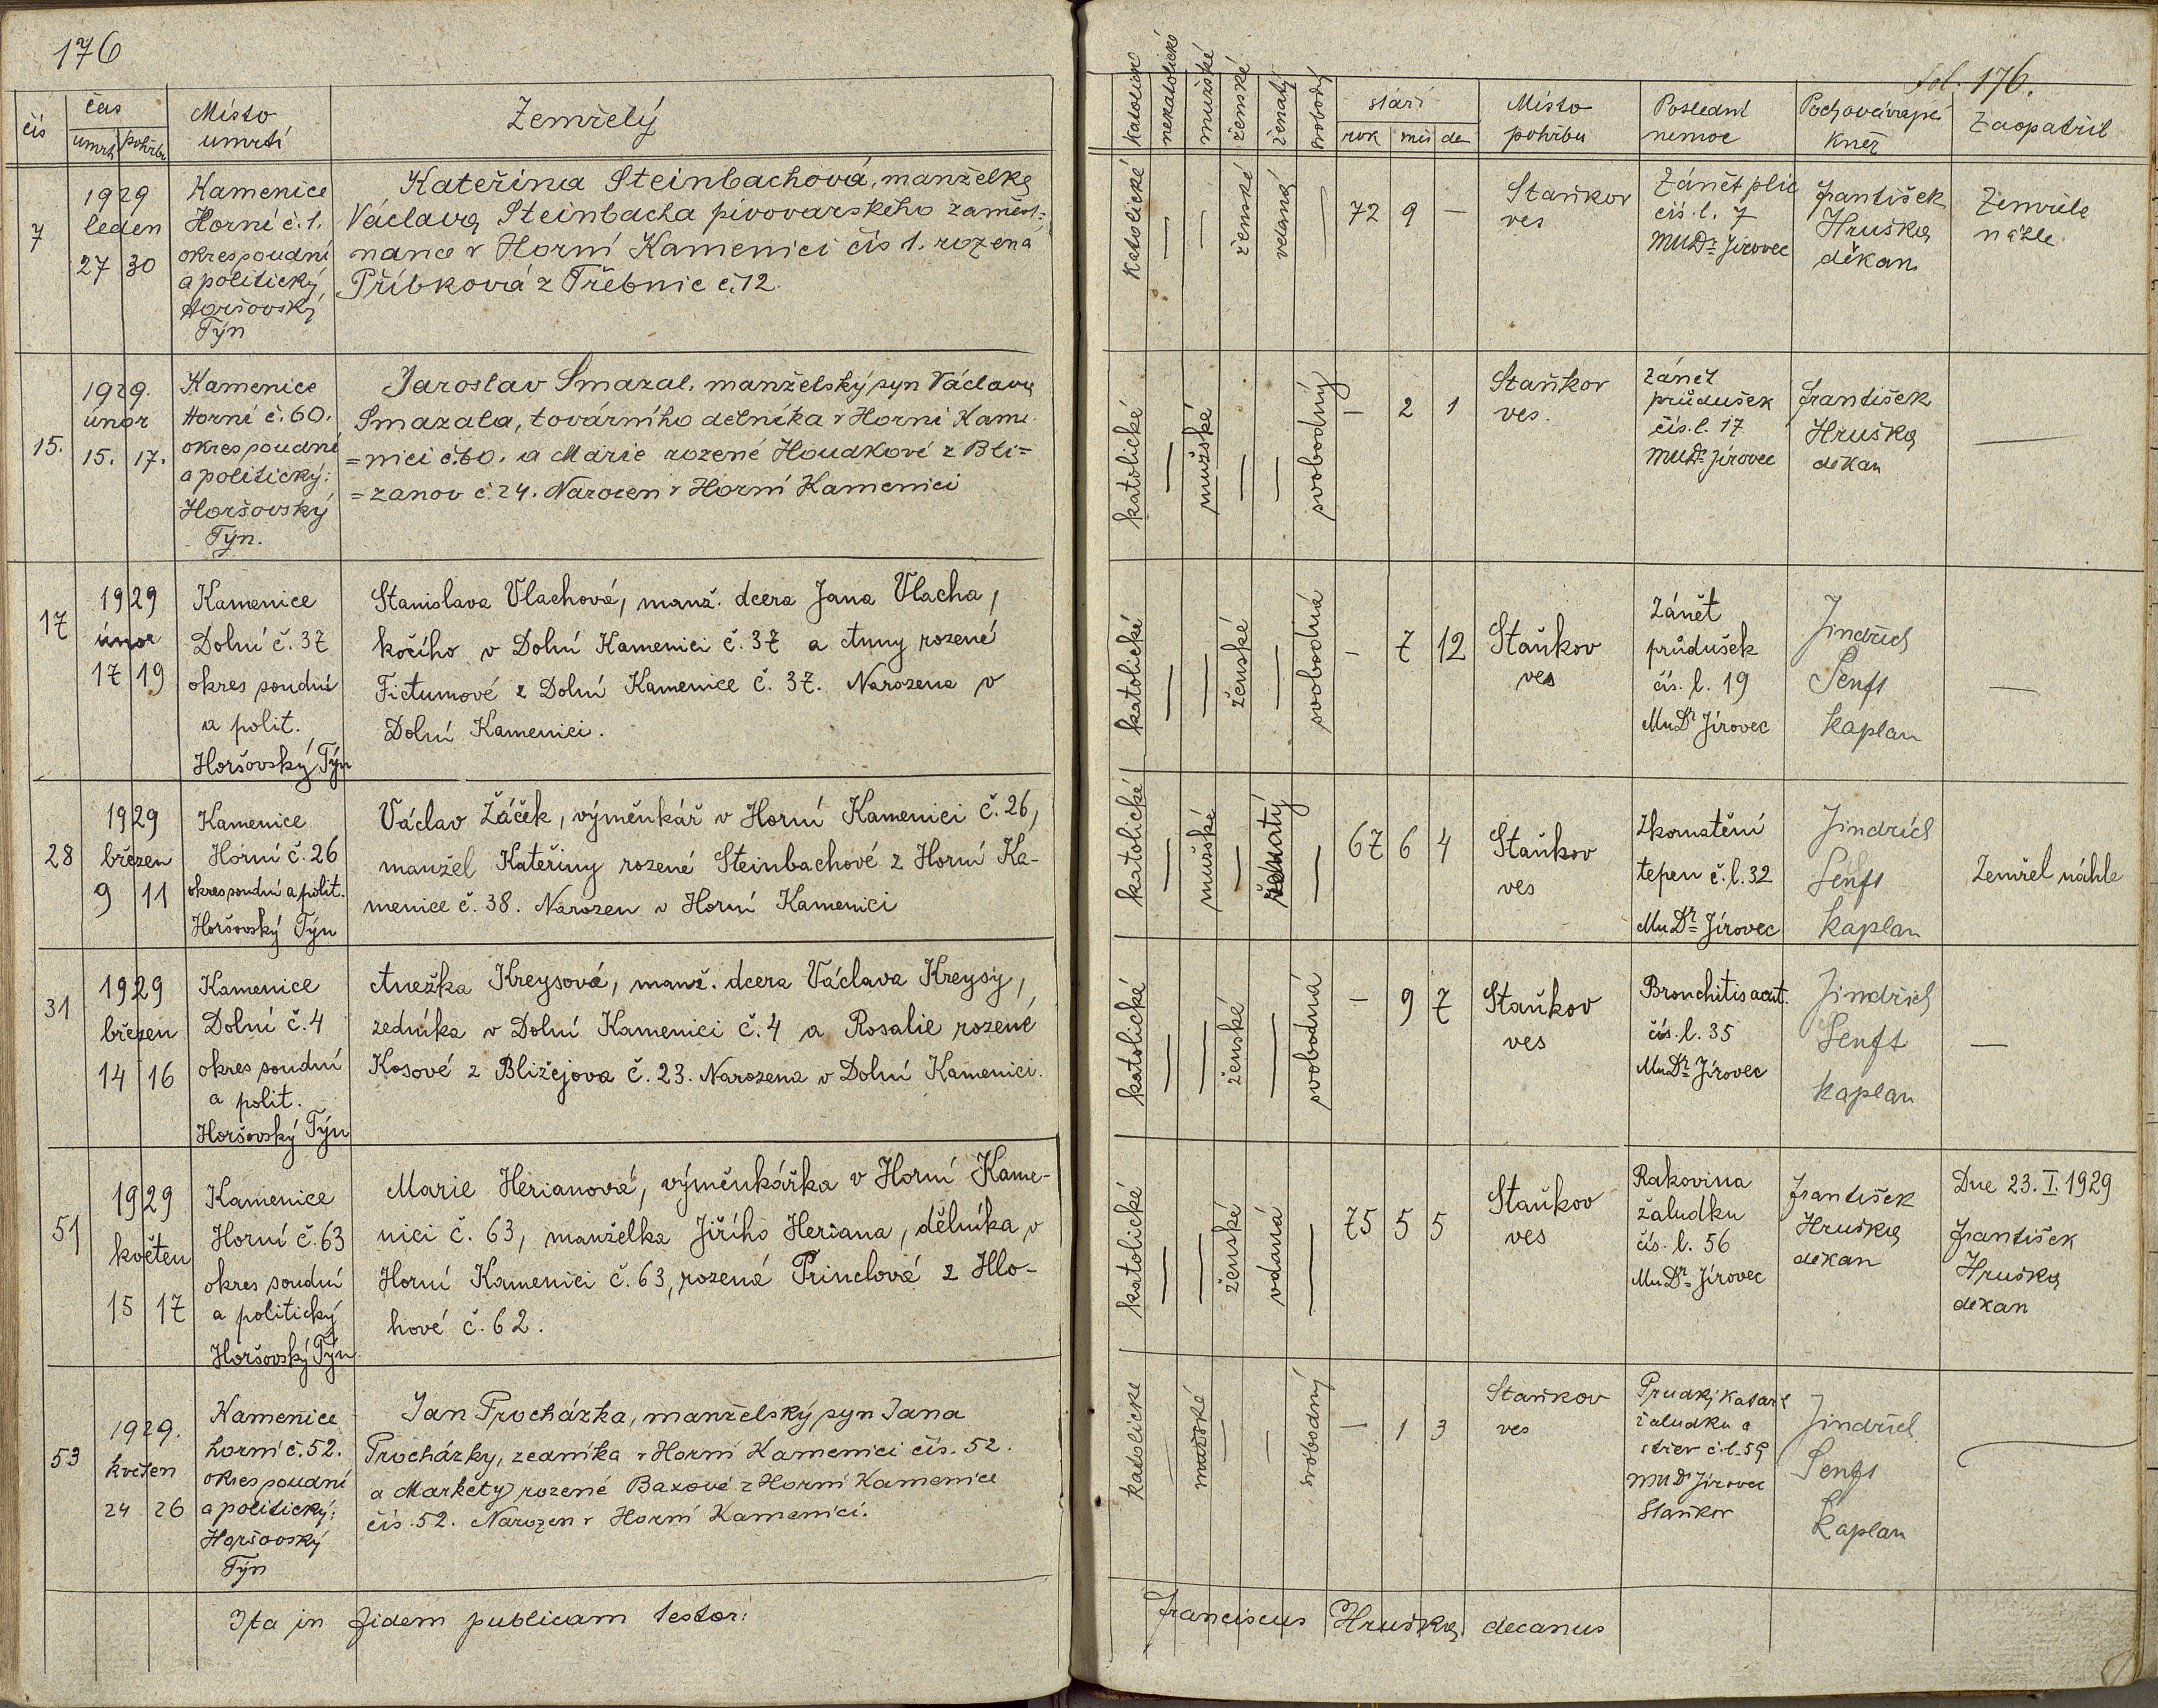 176
čís
čas
umrtí
pohřbu
Místo
umrtí
Zemřelý
7
1929
leden
27 30
Kamenice
Horní č. 1.
okres soudní
a politický
Horšovský
Týn
Kateřina Steinbachová, manželka
Václava Steinbacha pivovarského zaměst-
nance v Horní Kamenici čís 1. rozená
Příbková z Třebnic č. 12.
15.
1929.
únor
15. 17.
Kamenice
Horní č. 60.
okres soudní
a politický:
Horšovský
Týn.
Jaroslav Smazal, manželský syn Václava
Smazala, továrního dělníka v Horní Kame
=nici č. 60. a Marie rozené Houdkové z Bli=
=zanov č. 24. Narozen v Horní Kamenici
17
1929
únor
17 19
Kamenice
Dolní č. 37
okres soudní
a polit.
Horšovský Týn
Stanislava Vlachová, manž. dcera Jana Vlacha,
kočího v Dolní Kamenici č. 37 a Anny rozené
Fictumové z Dolní Kamenice č. 37. Narozena v
Dolní Kamenici.
28
1929
březen
9 11
Kamenice
Horní č. 26
okres soudní a polit.
Horšovský Týn
Václav Žáček, výměnkář v Horní Kamenici č. 26,
manžel Kateřiny rozené Steinbachové z Horní Ka-
menice č. 38. Narozen v Horní Kamenici
31
1929
březen
14 16
Kamenice
Dolní č. 4
okres soudní
a polit.
Horšovský Týn
Anežka Kreysová, manž. dcera Václava Kreysy,
zedníka v Dolní Kamenici č. 4 a Rosalie rozené
Kosové z Bližejova č. 23. Narozena v Dolní Kamenici.
51
1929
květen
15 17
Kamenice
Horní č. 63
okres soudní
a politický
Horšovský Týn
Marie Herianová, výměnkářka v Horní Kame-
nici č. 63, manželka Jiřího Heriana, dělníka v
Horní Kamenici č. 63, rozená Princlová z Hlo-
hové č. 62.
53
1929.
květen
24 26
Kamenice
horní č. 52.
okres soudní
a politický:
Horšovský
Týn
Jan Procházka, manželský syn Jana
Procházky, zedníka v Horní Kamenici čís. 52.
a Markety rozené Baxové z Horní Kamenice
čís. 52. Narozen v Horní Kamenici.
Ita in fidem publicam testor:
fol. 176.
katolické
nekatolické
mužské
ženské
ženatý
svobodný
stáří
rok
měs
de
Místo
pohřbu
Poslední
nemoc
Pochovávající
kněz
Zaopatřil
katolické
—
—
ženské
vdaná
—
72 9 —
Staňkov
ves
Zánět plic
čís. l. 7
MUDr Jírovec
František
Hruška
děkan
Zemřela
náhle
katolické
—
mužské
—
—
svobodný
— 2 1
Staňkov
ves.
Zánět
průdušek
čís. l. 17
MUDr Jírovec
František
Hruška
děkan
—
katolické
—
—
ženské
—
svobodná
— 7 12
Staňkov
ves
Zánět
průdušek
čís. l. 19
MuDr Jírovec
Jindřich
Senft
kaplan
—
katolické
—
mužské
—
ženatý
—
67 6 4
Staňkov
ves
Zkornatění
tepen č. l. 32
MuDr Jírovec
Jindřich
Senft
kaplan
Zemřel náhle
katolické
—
—
ženské
—
svobodná
— 9 7
Staňkov
ves
Bronchitis acut.
čís. l. 35
MuDr Jírovec
Jindřich
Senft
kaplan
—
katolické
—
—
ženské
vdaná
—
75 5 5
Staňkov
ves
Rakovina
žaludku
čís. l. 56
MuDr Jírovec
František
Hruška
děkan
Dne 23. I. 1929
František
Hruška
děkan
katolické
—
mužské
—
—
svobodný
— 1 3
Staňkov
ves
Prudký katarh
žaludku a
střev č. l. 59
MUDr Jírovec
Staňkov
Jindřich
Senft
Kaplan
—
Franciscus Hruška, decanus